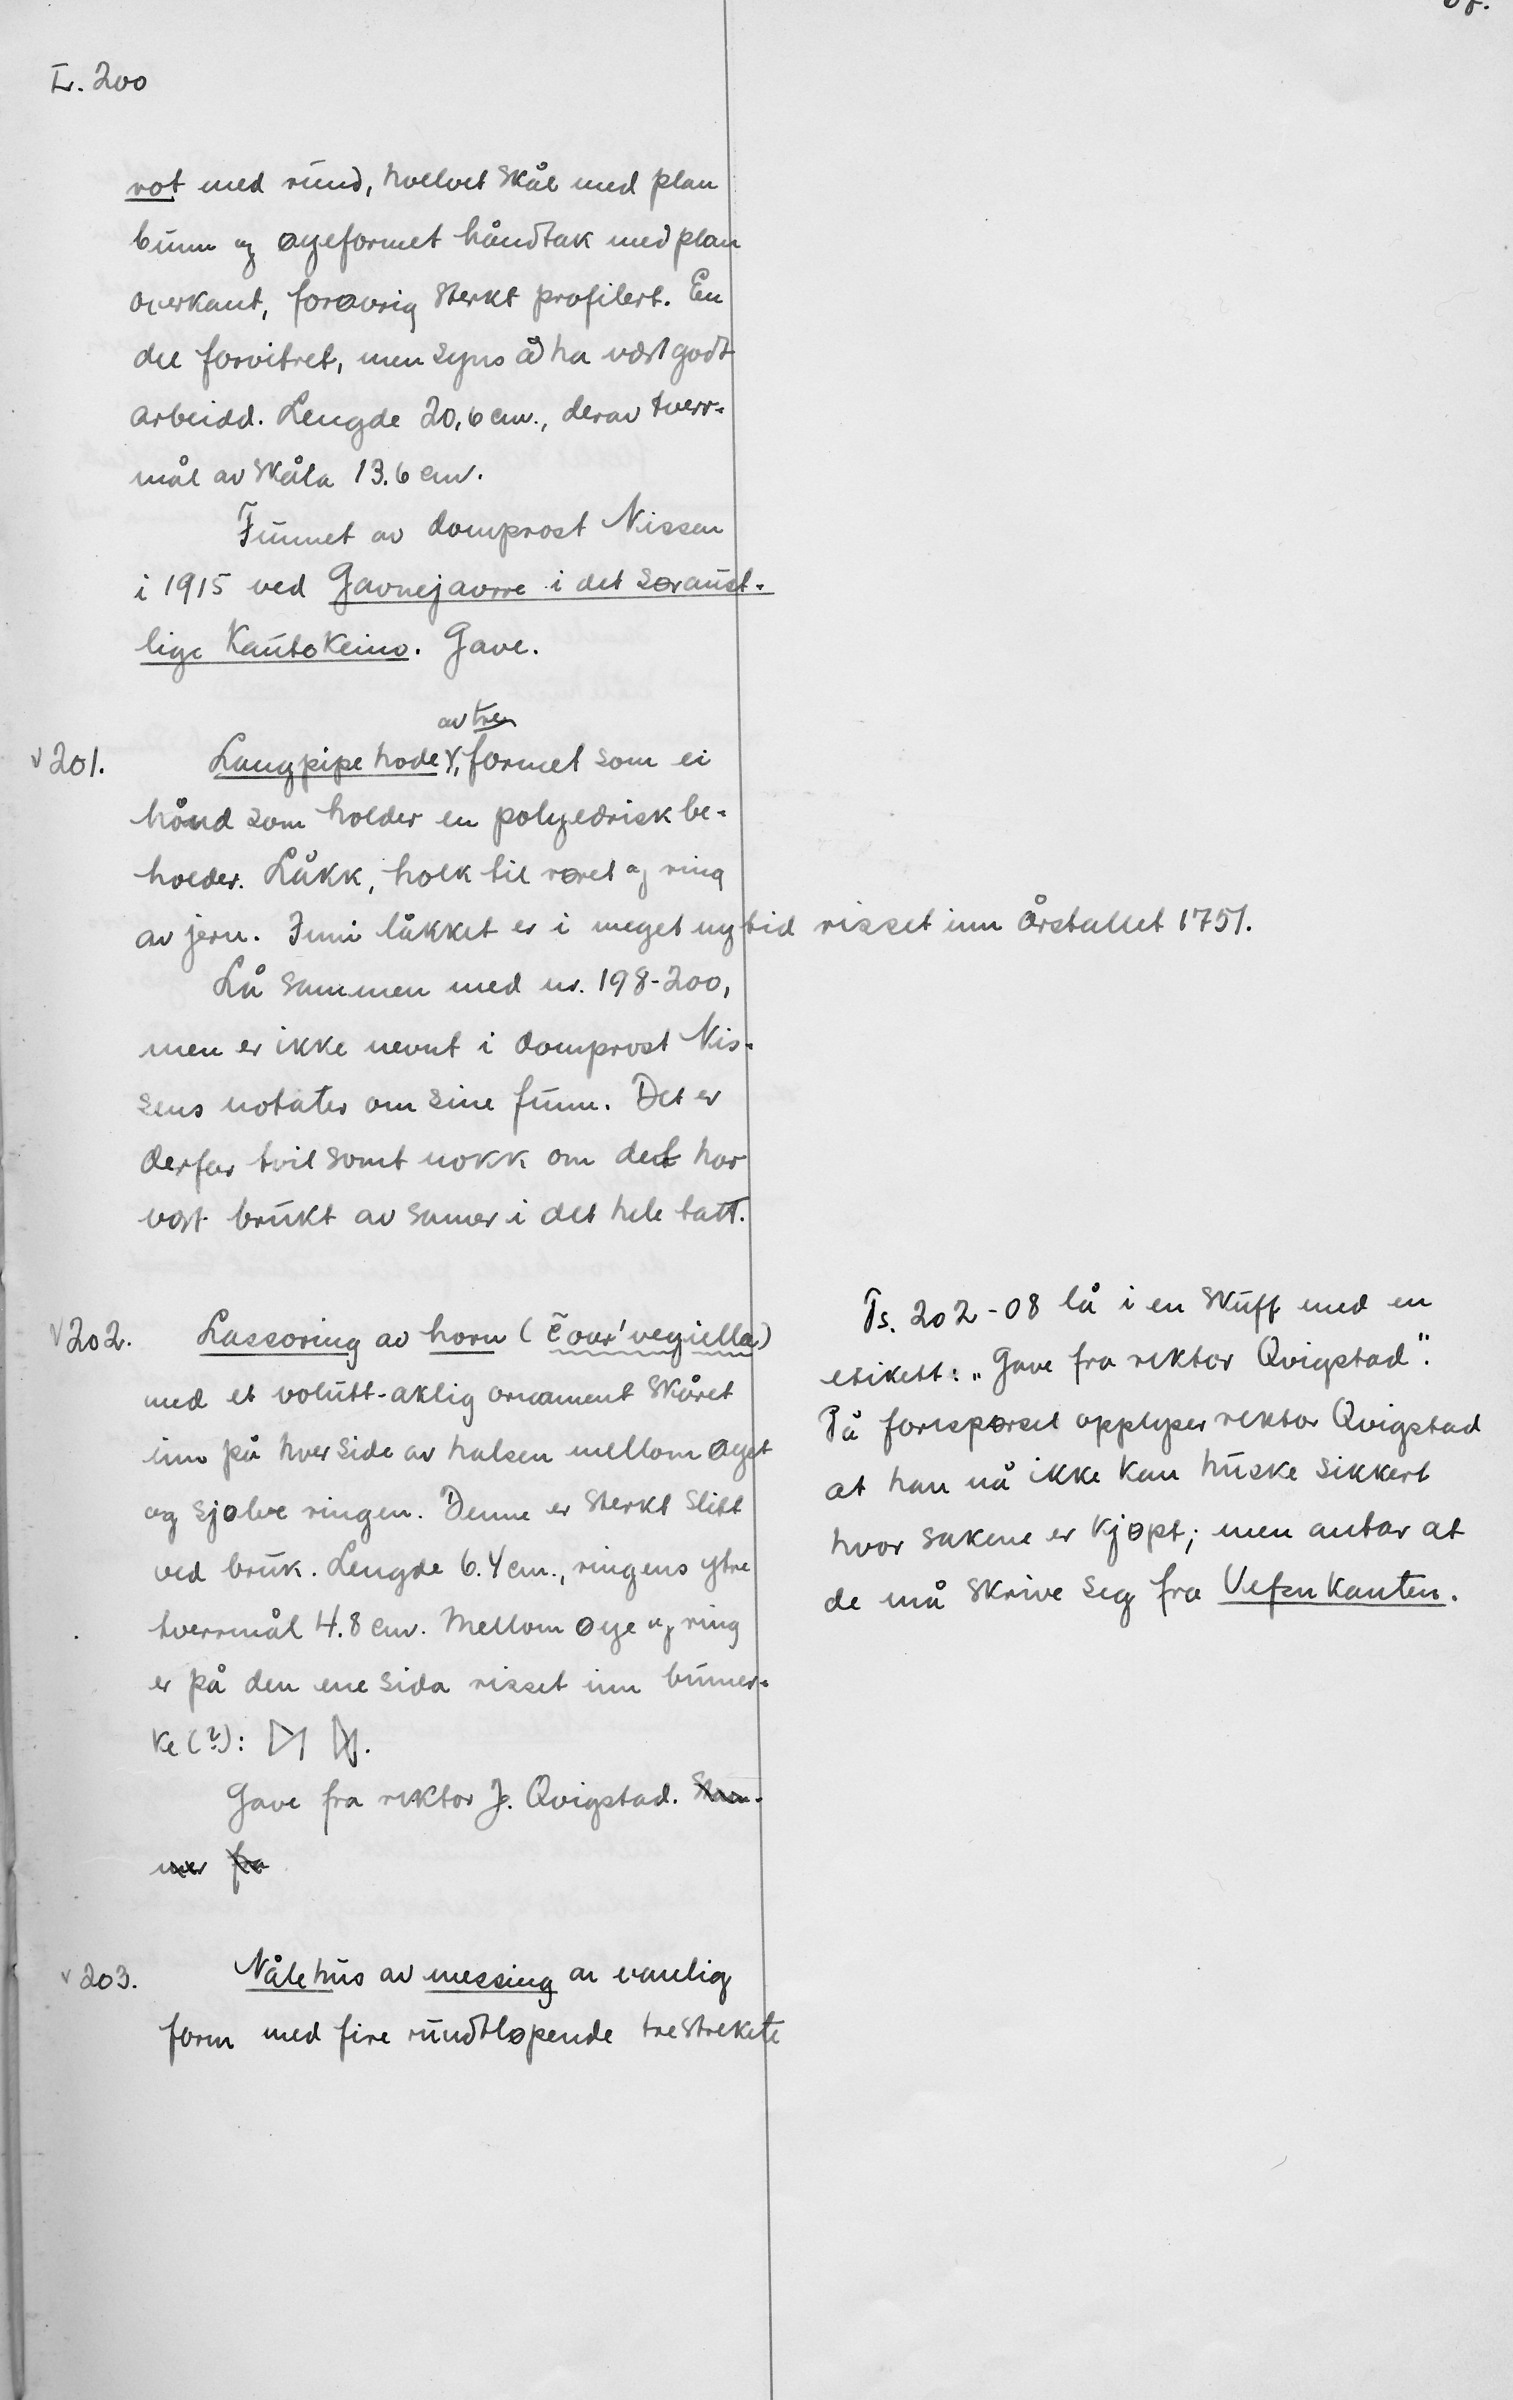 L. 200
rot med rund, hvelvet skål med plan
bunn og øyeformet håndtak med plan
overkant, forøvrig sterkt profilert. En
del forvitret, men syns å ha vært godt
arbeidd. Lengde 20,6 cm., derav tverr-
mål av skåla 13.6 cm.
Funnet av domprost Nissen
i 1915 ved Gavnejavrre i det søraust-
lige Kautokeino. Gave.
av tre
v 201. Langpipehode, formet som ei
hånd som holder en polyedrisk be-
holder. Låkk, holk til røret og ring
av jern. Inni låkket er i meget ny tid risset inn årstallet 1751.
Lå sammen med nr. 198-200,
men er ikke nevnt i domprost Nis-
sens notater om sine funn. Det er
derfor tvilsomt nokk om det har
vært brukt av samer i det hele tatt.
v 202. Lassoring av horn (čoar'vegiella)
med et volutt-aktig ornament skåret
inn på hver side av halsen mellom øyet
og sjølve ringen. Denne er sterkt slitt
ved bruk. Lengde 6.4 cm., ringens ytre
tverrmål 4.8 cm. Mellom øye og ring
er på den ene sida risset inn bumer-
ke (?):
Gave fra rektor J. Qvigstad. Stam-
mer fra
v 203. Nålehus av messing av vanlig
form med fire rundtløpende trestrekete
Ts. 202-08 lå i en skuff med en
etikett: „Gave fra rektor Qvigstad".
På forespørsel opplyser rektor Qvigstad
at han nå ikke kan huske sikkert
hvor sakene er kjøpt; men antar at
de må skrive seg fra Vefsnkanten.